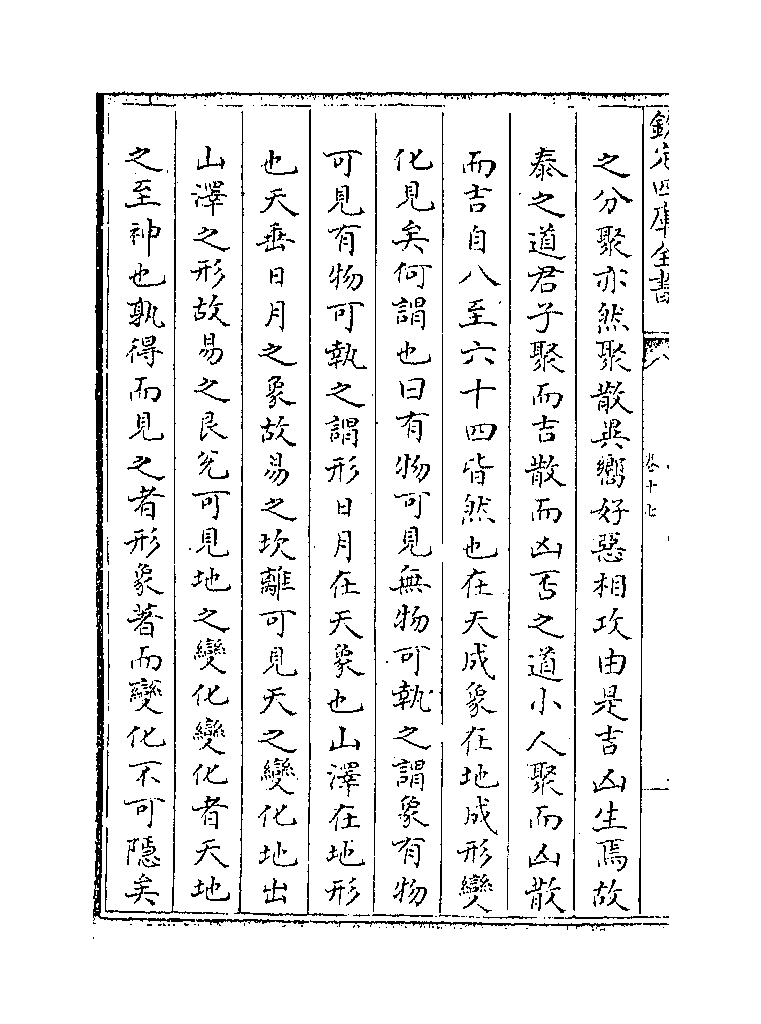 欽定四庫全書
卷十七
之分聚亦然聚散異嚮好惡相攻由是吉凶生焉故
泰之道君子聚而吉散而凶否之道小人聚而凶散
而吉自八至六十四皆然也在天成象在地成形變
化見矣何謂也曰有物可見無物可執之謂象有物
可見有物可執之謂形日月在天象也山澤在地形
也天垂日月之象故易之坎離可見天之變化地出
山澤之形故易之艮兊可見地之變化變化者天地
之至神也孰得而見之者形象著而變化不可隱矣